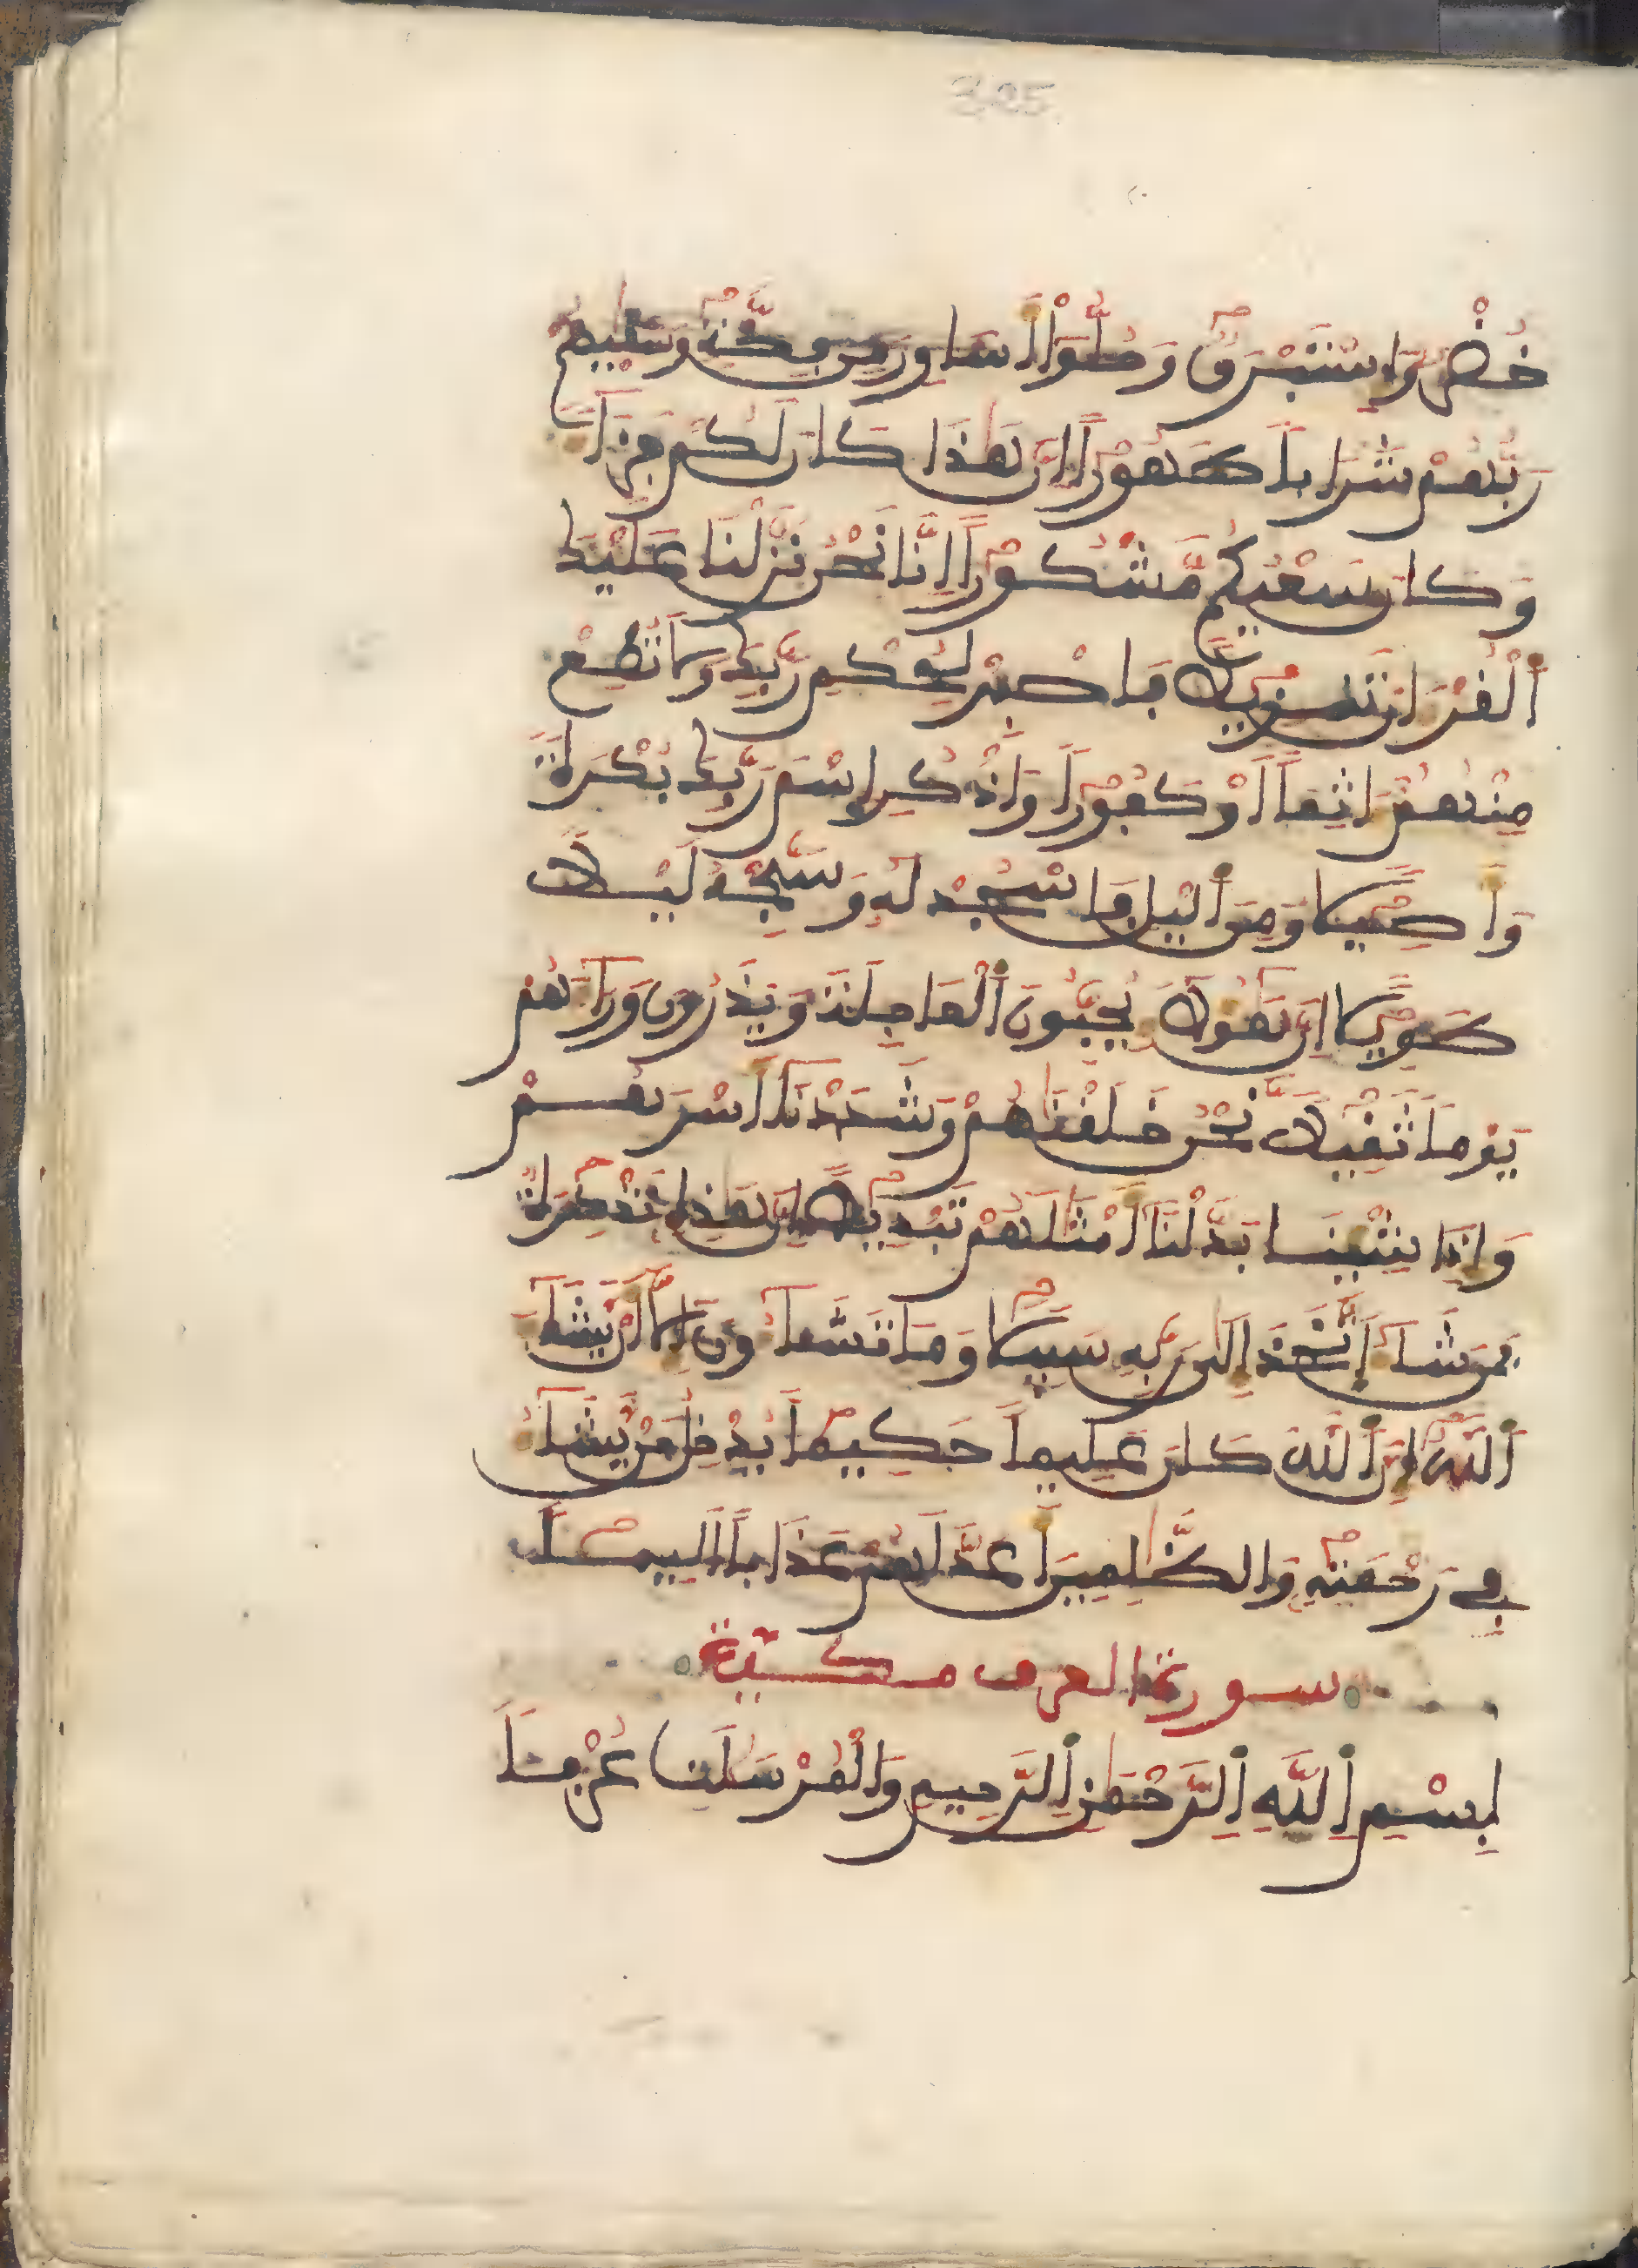 325
خُضْرٌ وَإِسْتَبْرَقٌ وَحُلُّوٓاْ أَسَاوِرَ مِن فِضَّةٍ وَسَقَيٰهُمْ
رَبُّهُمْ شَرَاباً طَهُوراً اِنَّ هَٰذَا كَانَ لَكُمْ جَزَآءً
وَكَانَ سَعْيُكُم مَّشْكُوراً اِنَّا نَحْنُ نَزَّلْنَا عَلَيْكَ
اَ۬لْقُرْءَانَ تَنزِيلاً فَاصْبِرْ لِحُكْمِ رَبِّكَ وَلَا تُطِعْ
مِنْهُمْ ءَاثِماً اَوْ كَفُوراً وَاذْكُرِ اِسْمَ رَبِّكَ بُكْرَةً
وَأَصِيلًا وَمِنَ اَ۬ليْلِ فَاسْجُدْ لَهُ وَسَبِّحْهُ لَيْلاً
طَوِيلًا اِنَّ هَٰٓؤُلَآءِ يُحِبُّونَ اَ۬لْعَاجِلَةَ وَيَذَرُونَ وَرَآءَهُمْ
يَوْماً ثَقِيلاً نَّحْنُ خَلَقْنَٰهُمْ وَشَدَدْنَآ أَسْرَهُمْ
وَإِذَا شِئْنَا بَدَّلْنَآ أَمْثَٰلَهُمْ تَبْدِيلاً اِنَّ هَٰذِهِ تَذْكِرَةٌ
فَمَن شَآءَ اَ۪تَّخَذَ إِلَىٰ رَبِّهِ سَبِيلًا وَمَا تَشَآءُونَ إِلَّآ أَنْ يَّشَآءَ
اَ۬للَّهُ إِنَّ اَ۬للَّهَ كَانَ عَلِيماً حَكِيماً يُدْخِلُ مَنْ يَّشَآءُ
فِے رَحْمَتِهِ وَالظَّٰلِمِينَ أَعَدَّ لَهُمْ عَذَاباً اَلِيماً
سورة العرف مكية
بِسْمِ اِ۬للَّهِ اِ۬لرَّحْمَٰنِ اِ۬لرَّحِيمِ وَالْمُرْسَلَٰتِ عُرْفاً